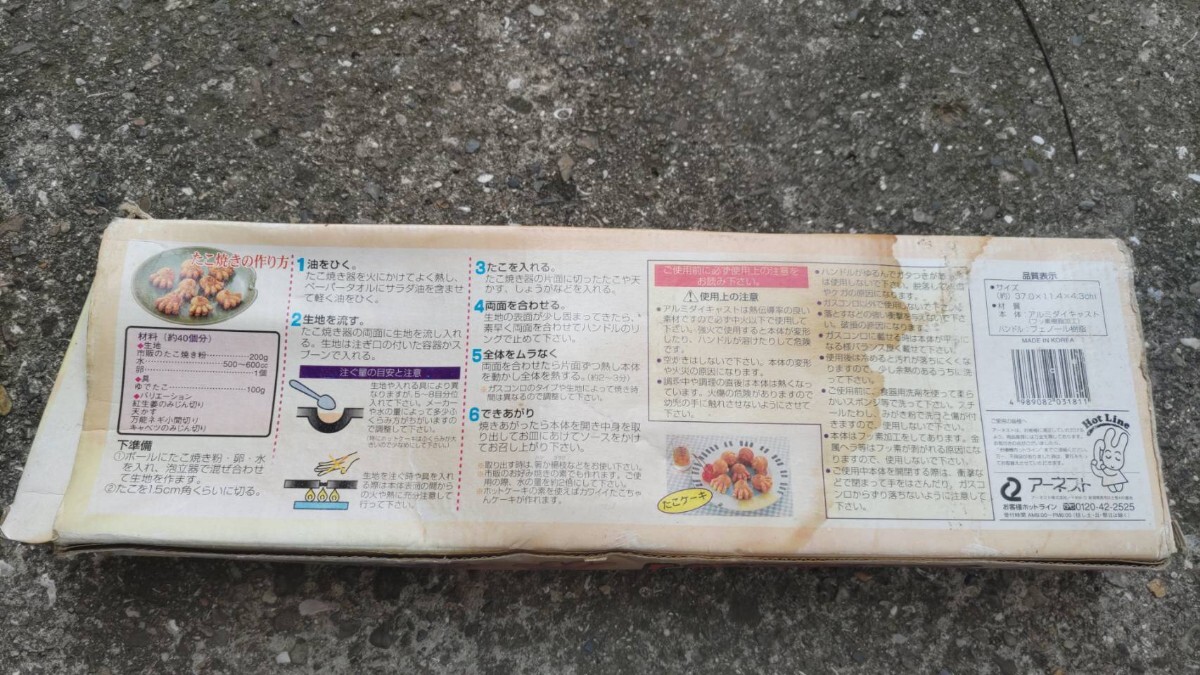 たこ焼きの作り方
材料（約40個分）
◆生地
市販のたこ焼き粉 200g
水 500〜600cc
卵 1個
◆具
ゆでたこ 100g
◆バリエーション
紅生姜のみじん切り
天かす
万能ネギ小間切り
キャベツのみじん切り
下準備
①ボールにたこ焼き粉・卵・水
を入れ、泡立器で混ぜ合わせ
て生地を作ります。
②たこを1.5cm角くらいに切る。
1 油をひく。
たこ焼き器を火にかけてよく熱し、
ペーパータオルにサラダ油を含ませ
て軽く油をひく。
2 生地を流す。
たこ焼き器の両面に生地を流し入れ
る。生地は注ぎ口の付いた容器かス
プーンで入れる。
注ぐ量の目安と注意
生地や入れる具により異
なりますが、5〜8目分位
入れて下さい。メーカー
や水の量によって多少ふ
くらみ方がちがいますの
で調整して下さい。
生地を注ぐ時や具を入れ
る際は本体の間からの
火や熱に充分注意して
行って下さい。
3 たこを入れる。
たこ焼き器の片面に切ったたこや天
かす、しょうがなどを入れる。
4 両面を合わせる。
生地の表面が少し固まってきたら、
素早く両面を合わせてハンドルのリ
ングで止めて下さい。
5 全体をムラなく
両面を合わせたら片面ずつ熱し本体
を動かし全体を熱する。(約2〜3分)
ガスコンロのタイプや生地によって焼き時
間は異なるので調整して下さい。
6 できあがり
焼きあがったら本体を開き中身を取
り出してお皿にあけてソースをかけ
てお召し上がり下さい。
取り出す時は、箸か楊枝などをお使い下さい。
市販のお好み焼きの素でも作れます。ご使
用の際、水の量を約2倍にして下さい。
ホットケーキの素を使えばカワイイたこちゃ
んケーキが作れます。
ご使用前に必ず使用上の注意を
お読み下さい。
使用上の注意
●アルミダイキャストは熱伝導率の良い
素材ですので必ず中火以下で使用して
下さい。強火で使用すると本体が変形
したり、ハンドルが溶けたりして危険
です。
●空焼きはしないで下さい。本体の変形
や火災の原因になります。
●調理中や調理の直後は本体は熱くなっ
ています。火傷の危険がありますので
幼児の手に触れさせないようにさせて
下さい。
たこケーキ
●ガスコンロに載せる時は本体が平らに
なる様バランス良く載せて下さい。
●使用後は冷めると汚れが落ちにくくな
りますので、少し余熱のあるうちに洗
って下さい。
●本体はフッ素加工をしてあります。金
属ヘラ等はフッ素が剥がれる原因にな
りますので、使用しないで下さい。
●ご使用中本体を開閉する際は、衝撃な
どで閉まって手をはさんだり、ガスコ
ンロからずり落ちないように注意して
下さい。
品質表示
●サイズ
(約) 37.0×11.4×4.3cm
●材質
本体：アルミダイキャスト
ハンドル：フェノール樹脂
MADE IN KOREA
4 989082 031811
Hot Line
アーネスト
お客様ホットライン 0120-42-2525